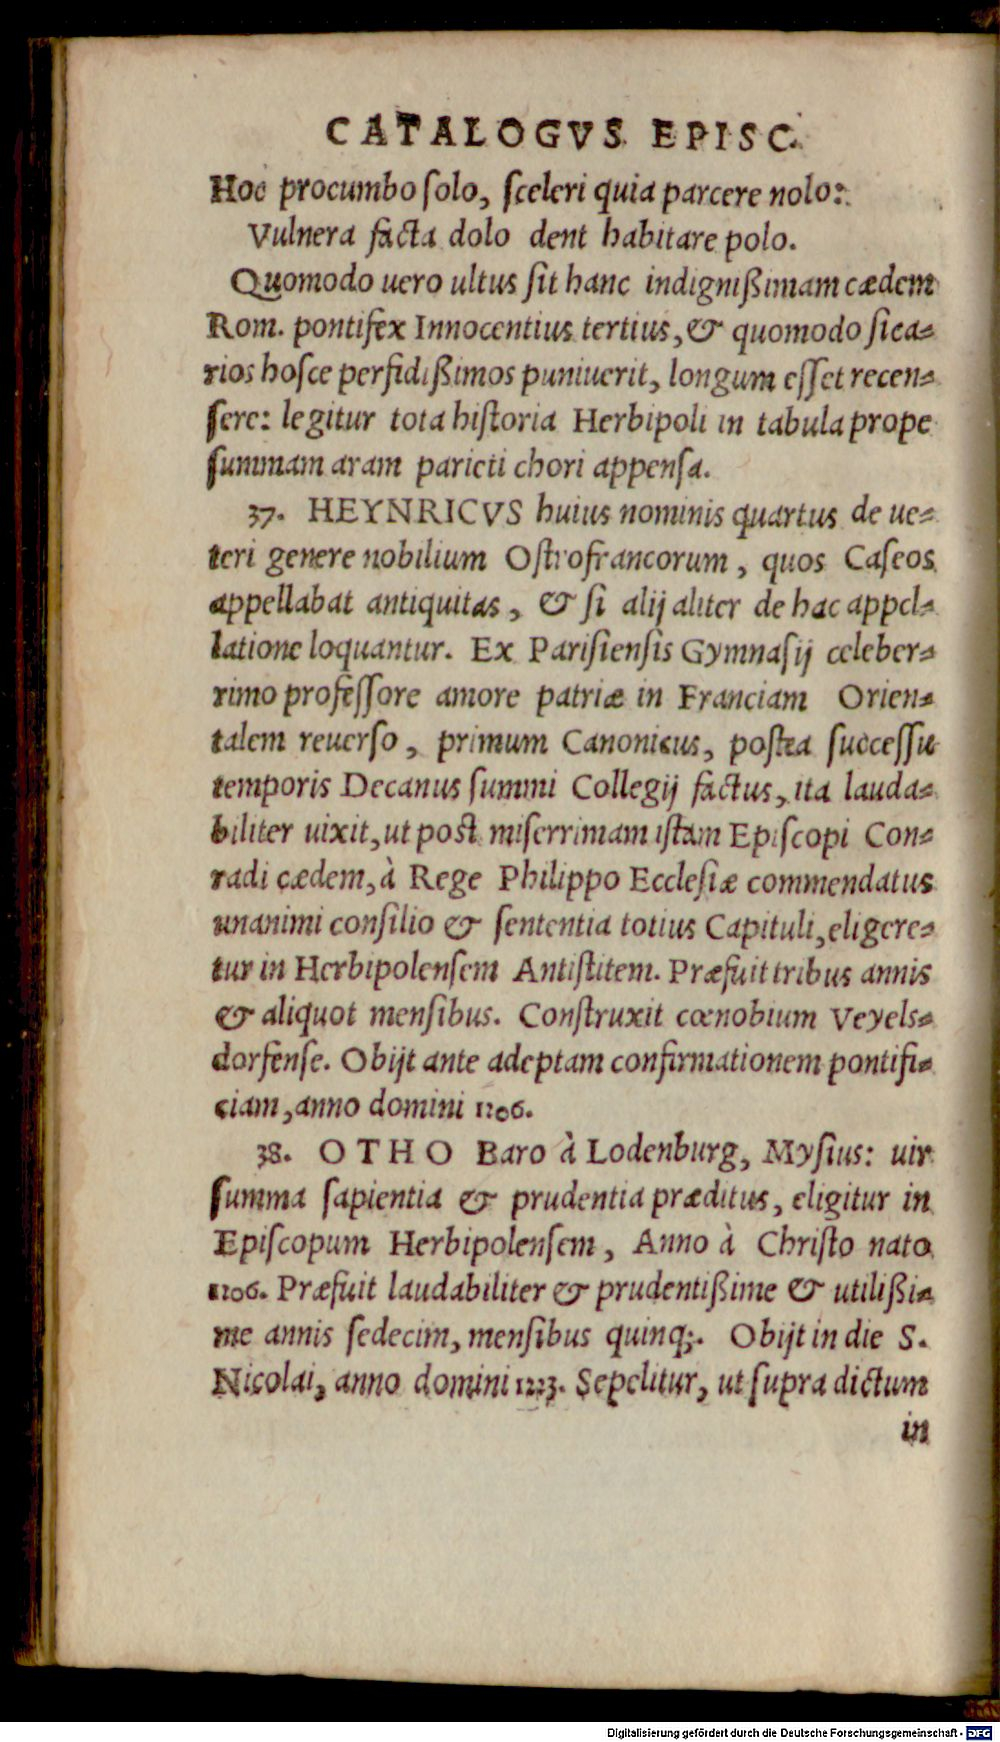 CATALOGVS EPISC.
Hoc procumbo ſolo, ſceleri quia parcere nolo:
Vulnera facta dolo dent habitare polo.
Quomodo uero ultus ſit hanc indignißimam cædem
Rom. pontifex Innocentius tertius, & quomodo ſica-
rios hoſce perfidißimos puniuerit, longum eſſet recen-
ſere: legitur tota hiſtoria Herbipoli in tabula prope
ſummam aram parieti chori appenſa.
37. HEYNRICVS huius nominis quartus de ue-
teri genere nobilium Oſtrofrancorum, quos Caſeos
appellabat antiquitas, & ſi alij aliter de hac appel-
latione loquantur. Ex Pariſienſis Gymnaſij celeber-
rimo profeſſore amore patriæ in Franciam Orien-
talem reuerſo, primum Canonicus, poſtea ſucceſſu
temporis Decanus ſummi Collegij factus, ita lauda-
biliter uixit, ut poſt miſerrimam iſtam Epiſcopi Con-
radi cædem, à Rege Philippo Eccleſiæ commendatus
unanimi conſilio & ſententia totius Capituli, eligere-
tur in Herbipolenſem Antiſtitem. Præfuit tribus annis
& aliquot menſibus. Conſtruxit cœnobium Veyels-
dorfenſe. Obijt ante adeptam confirmationem pontifi-
ciam, anno domini 1206.
38. OTHO Baro à Lodenburg, Myſius: uir
ſumma ſapientia & prudentia præditus, eligitur in
Epiſcopum Herbipolenſem, Anno à Chriſto nato
1206. Præfuit laudabiliter & prudentißime & utilißi-
me annis ſedecim, menſibus quinq;. Obijt in die S.
Nicolai, anno domini 1223. Sepelitur, ut ſupra dictum
in
Digitalisierung gefördert durch die Deutsche Forschungsgemeinschaft - DFG